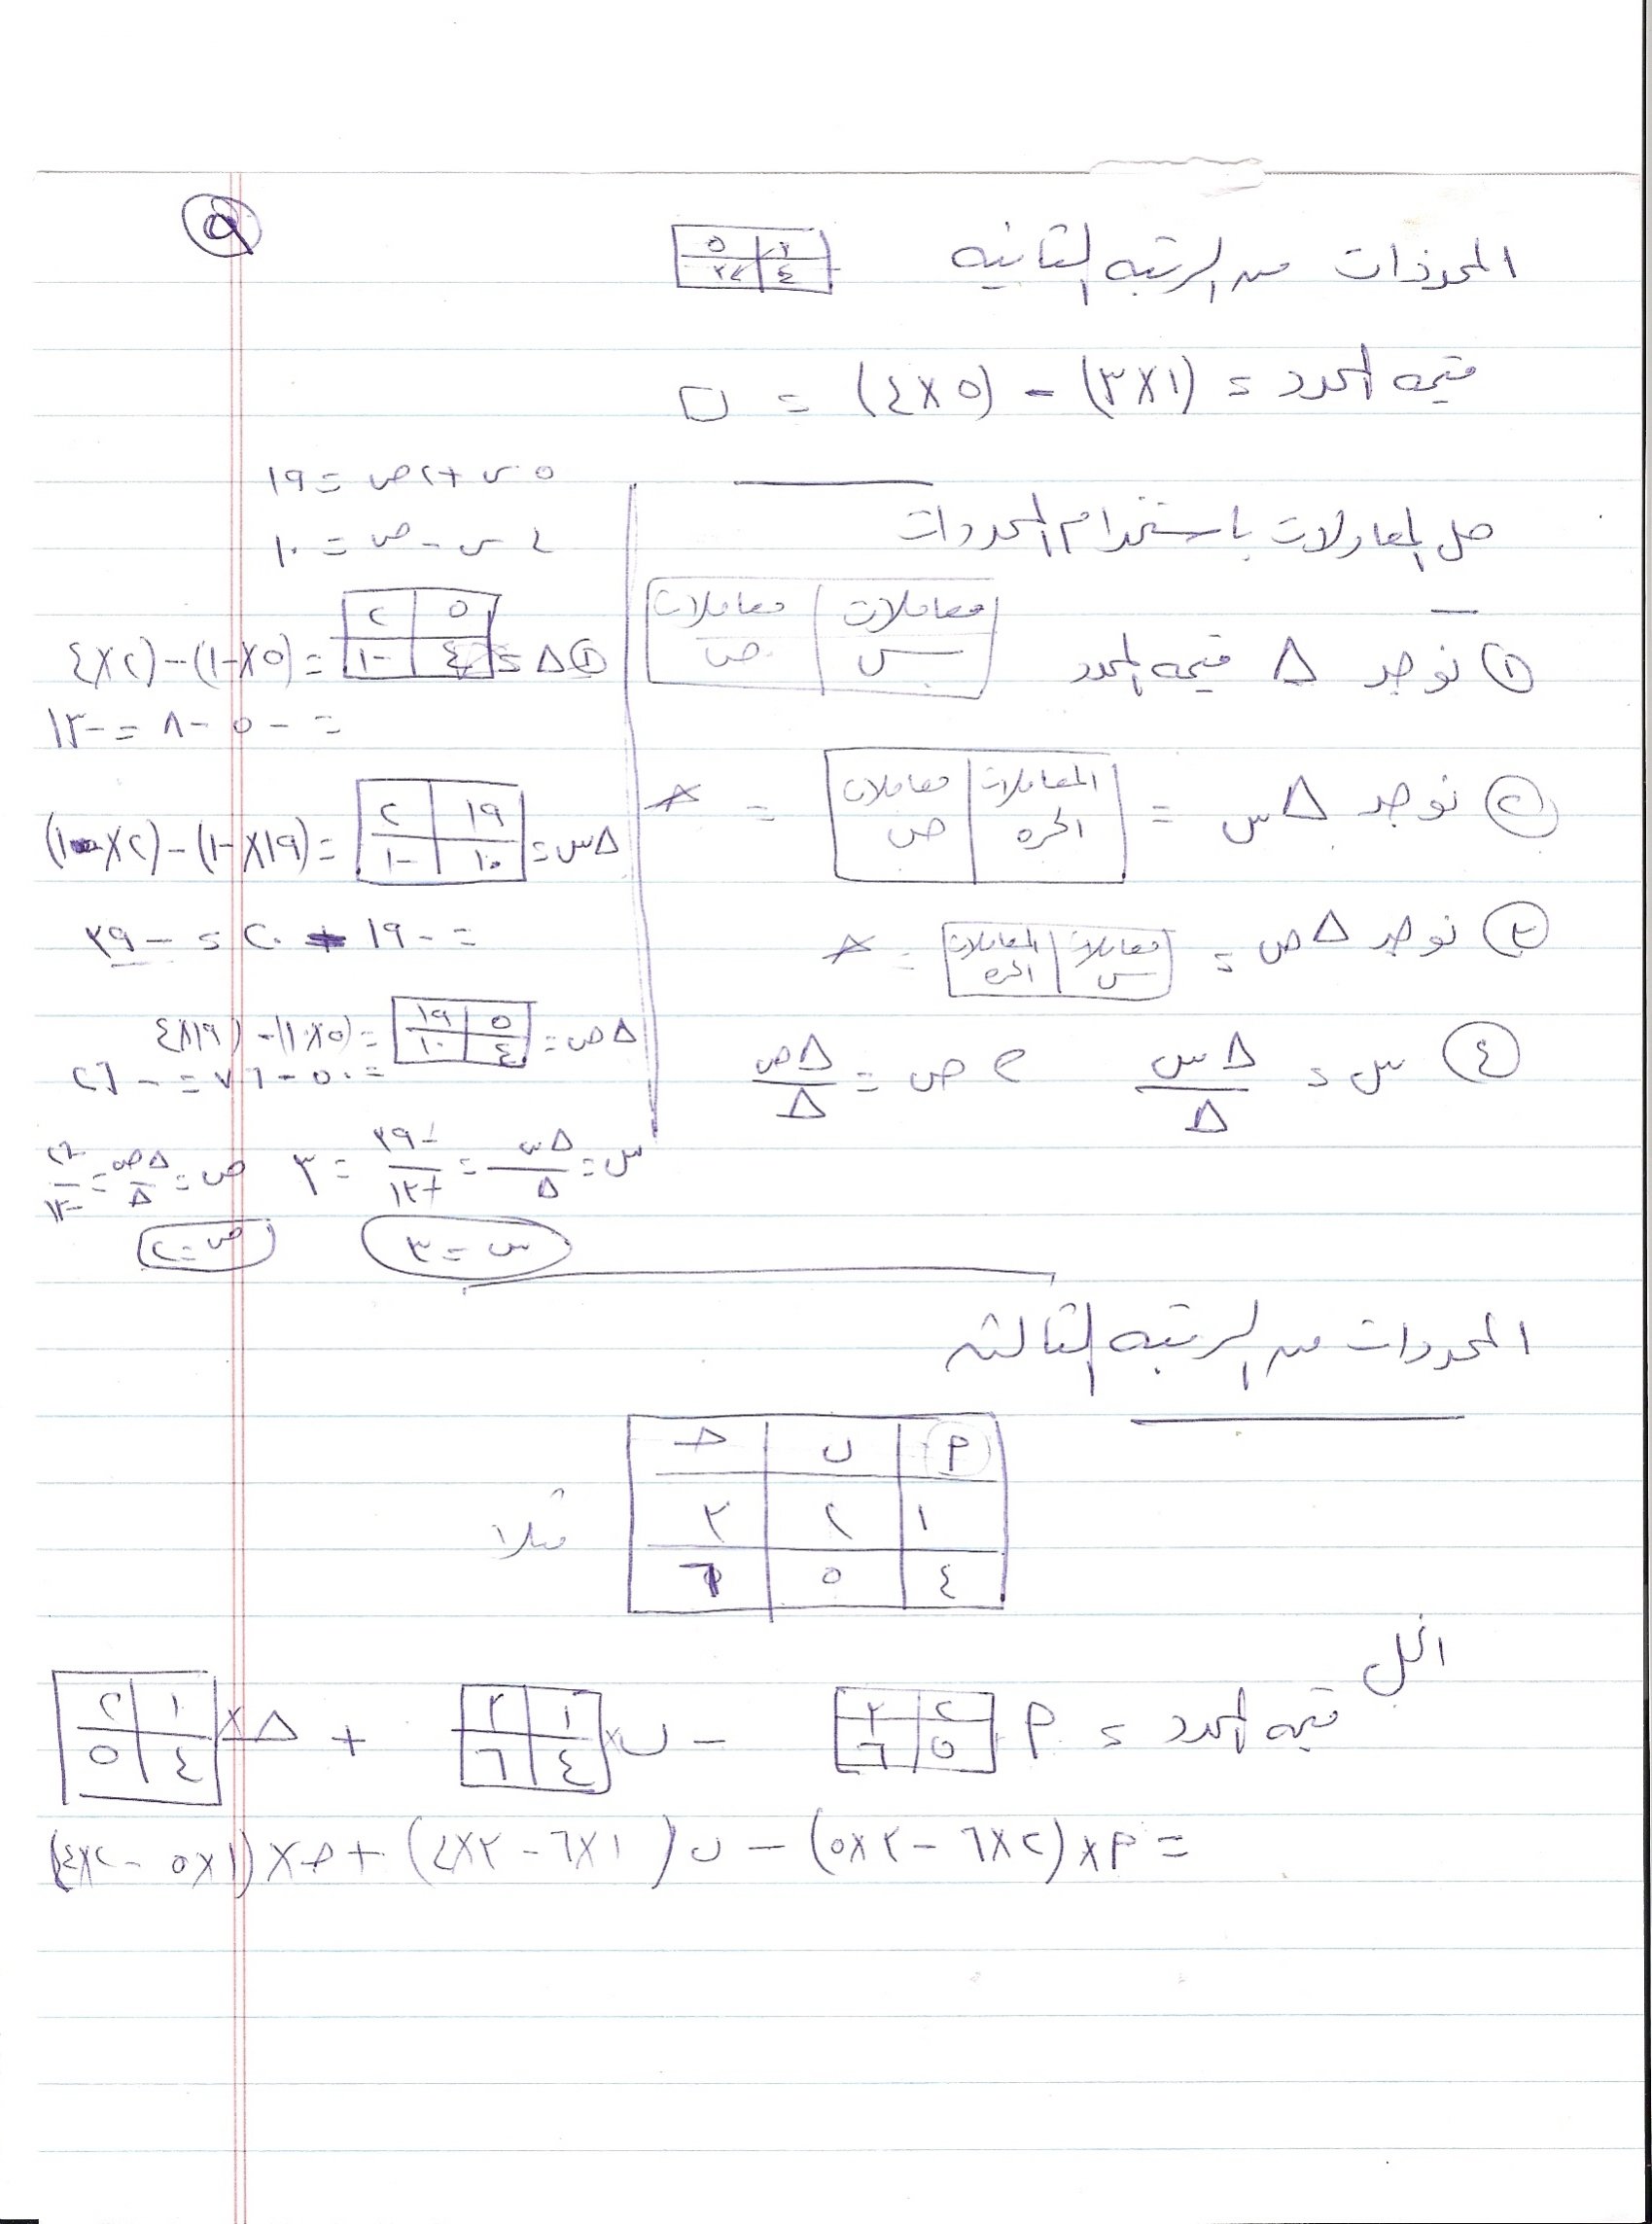 ٩
المحددات من الرتبه الثانيه
٥ ٤
قيمه المحدد = (١×٣) - (٥×٤) =
حل المعادلات باستخدام المحددات
① نوجد Δ قيمه المحدد
معاملات س | معاملات ص
② نوجد Δس = المعاملات الحره | معاملات ص =
③ نوجد Δص = معاملات س | المعاملات الحره =
④ س = Δس / Δ ، ص = Δص / Δ
٥س + ٢ص = ١٩
٤س - ص = ١٠
① Δ = ٥ ٢ ٤ -١ = (٥×-١) - (٢×٤)
= -٥ -٨ = -١٣
Δس = ١٩ ٢ ١٠ -١ = (١٩×-١) - (٢×١٠)
= -١٩ - ٢٠ = -٣٩
Δص = ٥ ١٩ ٤ ١٠ = (٥×١٠) - (١٩×٤)
= ٥٠ - ٧٦ = -٢٦
س = Δس / Δ = -٣٩ / -١٣ = ٣ ص = Δص / Δ = -٢٦ / -١٣
س = ٣ ص = ٢
المحددات من الرتبه الثالثه
م ب حـ
١ ٢ ٣
٤ ٥ ٦
مثلا
الحل
قيمه المحدد = م ٢ ٣ ٥ ٦ - ب× ١ ٣ ٤ ٦ + حـ× ١ ٢ ٤ ٥
= م×(٢×٦ - ٣×٥) - ب(١×٦ - ٣×٤) + حـ×(١×٥ - ٢×٤)